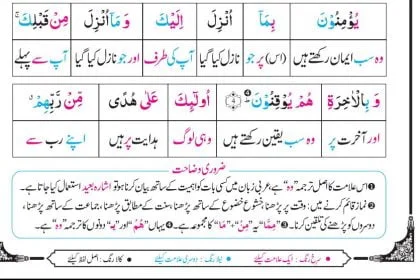 يُؤْمِنُوْنَ بِمَاۤ اُنْزِلَ اِلَيْكَ وَ مَاۤ اُنْزِلَ مِنْ قَبْلِكَ ۚ
وہ سب ایمان رکھتے ہیں (اس) پر جو نازل کیا گیا آپ کی طرف اور جو نازل کیا گیا آپ سے پہلے
وَ بِالْاٰخِرَةِ هُمْ يُوْقِنُوْنَ ؕ اُولٰٓىِٕكَ عَلٰى هُدًى مِّنْ رَّبِّهِمْ ۗ
اور آخرت پر وہ سب یقین رکھتے ہیں وہی لوگ ہدایت پر ہیں اپنے رب سے
ضروری وضاحت
❶ اس علامت کا اصل ترجمہ "وہ" ہے، عربی زبان میں کسی بات کو اہمیت کے ساتھ بیان کرنا ہو تو اشارہ بعید استعمال کیا جاتا ہے۔
❷ نماز قائم کرنے میں: وقت پر پڑھنا، خشوع خضوع کے ساتھ پڑھنا، سنت کے مطابق پڑھنا، جماعت کے ساتھ پڑھنا،
دوسروں کو پڑھنے کی تلقین کرنا۔ ❸ "مِمَّا" یہ "مِنْ"، "مَا" کا مجموعہ ہے۔ ❹ یہاں "هُمْ" اور "یہ" دونوں کا ترجمہ "وہ" ہے۔
سرخ رنگ: ایک علامت کیلئے نیلا رنگ: دوسری علامت کیلئے کالا رنگ: اصل لفظ کیلئے